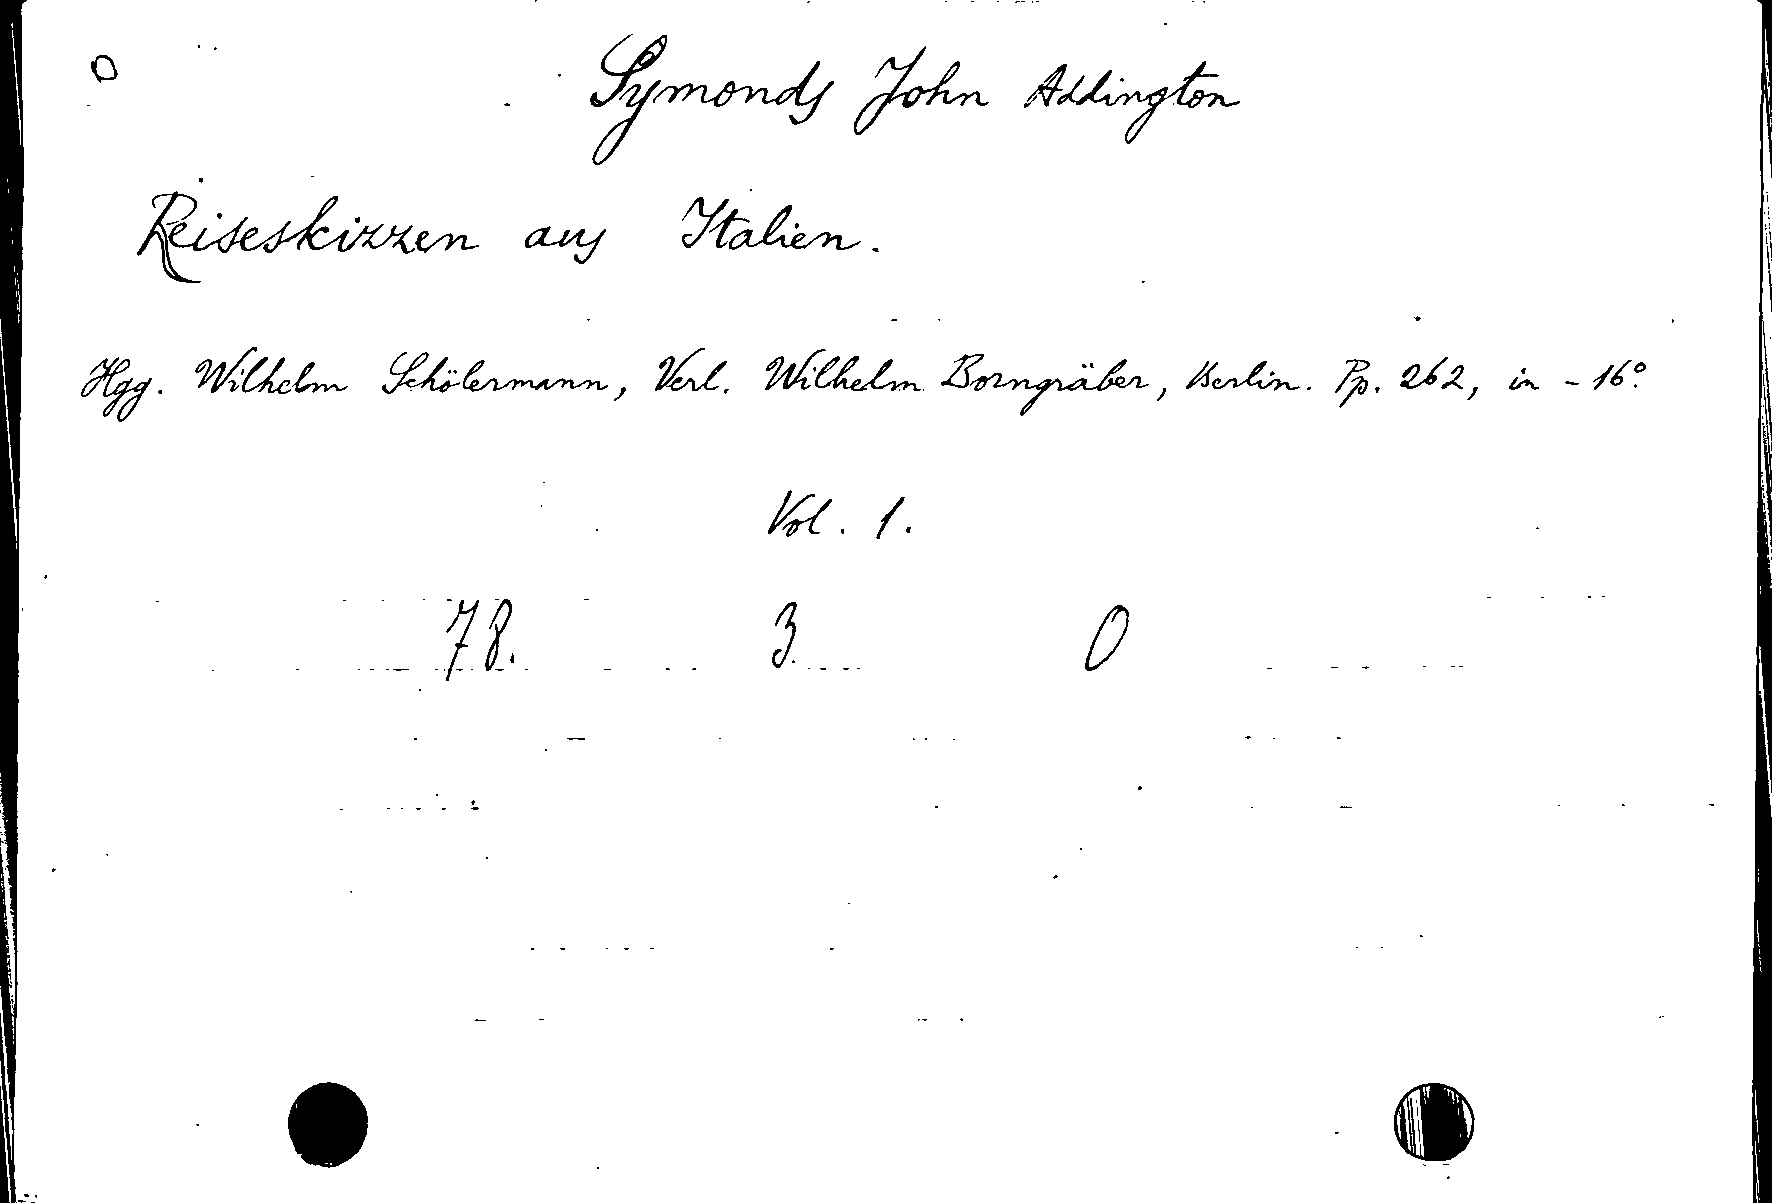 O
Symonds John Addington
Reiseskizzen aus Italien.
Hgg. Wilhelm Schölermann, Verl. Wilhelm Borngräber, Berlin. Pp. 262, in - 16°.
Vol. 1.
78. 3 O